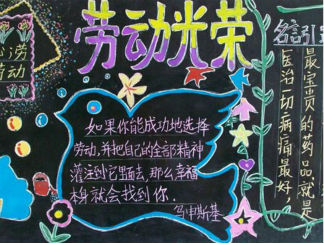 劳动光荣
劳
劳动
如果你能成功地选择
劳动,并把自己的全部精神
灌注到它里面去,那么幸福
本身就会找到你.
名言引
最宝贵的药品,就是
医治一切病痛最好,